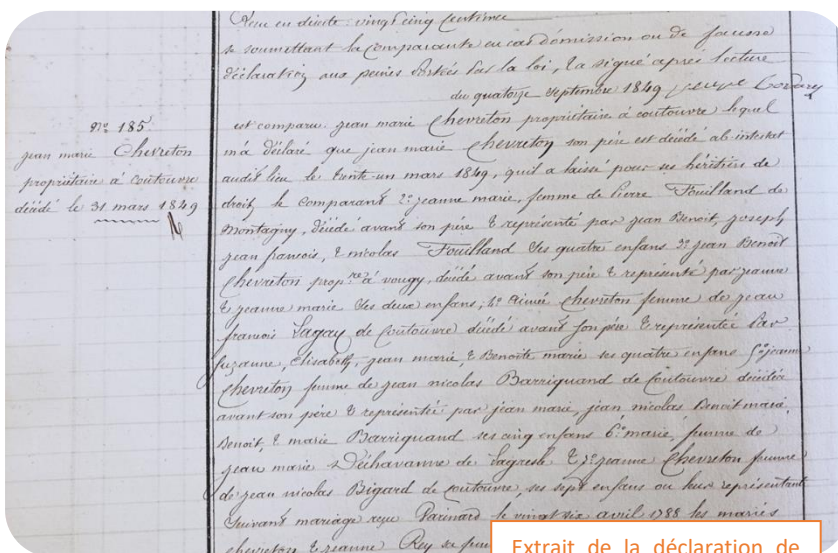 Reçu en dixite : vingt cinq centimes
se soumettant la comparante en cas d'omission ou de fausse
déclaration aux peines portées par la loi, & a signé après lecture
du quatorze septembre 1849
n.º 185
jean marie Chevreton
propriétaire à coutouvre
décédé le 31 mars 1849
est comparu jean marie Chevreton propriétaire à coutouvre lequel
m'a déclaré que jean marie Chevreton son père est décédé ab intestat
audit lieu le trente un mars 1849, qu'il a laissé pour ses héritiers de
droit le comparant 2º jeanne marie, femme de Pierre Fouilland de
Montagny, décédé avant son père & représenté par jean Benoit, joseph
jean francois, & nicolas Fouilland ses quatre enfans 3º jean Benoit
Chevreton prop.re à vougy, décédé avant son père & représenté par jeanne
& jeanne marie ses deux enfans; 4º Aimée Chevreton femme de jean
francois Lagay de Coutouvre décédé avant son père & représentée par
suzanne, Elisabeth, jean marie, & Benoite marie ses quatre enfans 5º jeanne
Chevreton femme de jean nicolas Barriquand de Coutouvre décédée
avant son père & représentée par jean marie, jean nicolas Benoit marie,
Benoit, & marie Barriquand ses cinq enfans 6º marie, femme de
jean marie Déchavanne de Sagresle & 7º jeanne Chevreton femme
de jean nicolas Bigard de coutouvre, ses sept enfans ou leurs représentant
Suivant mariage reçu le vingt six avril 1788 les mariés
chevreton & jeanne Rey se
Extrait de la déclaration de